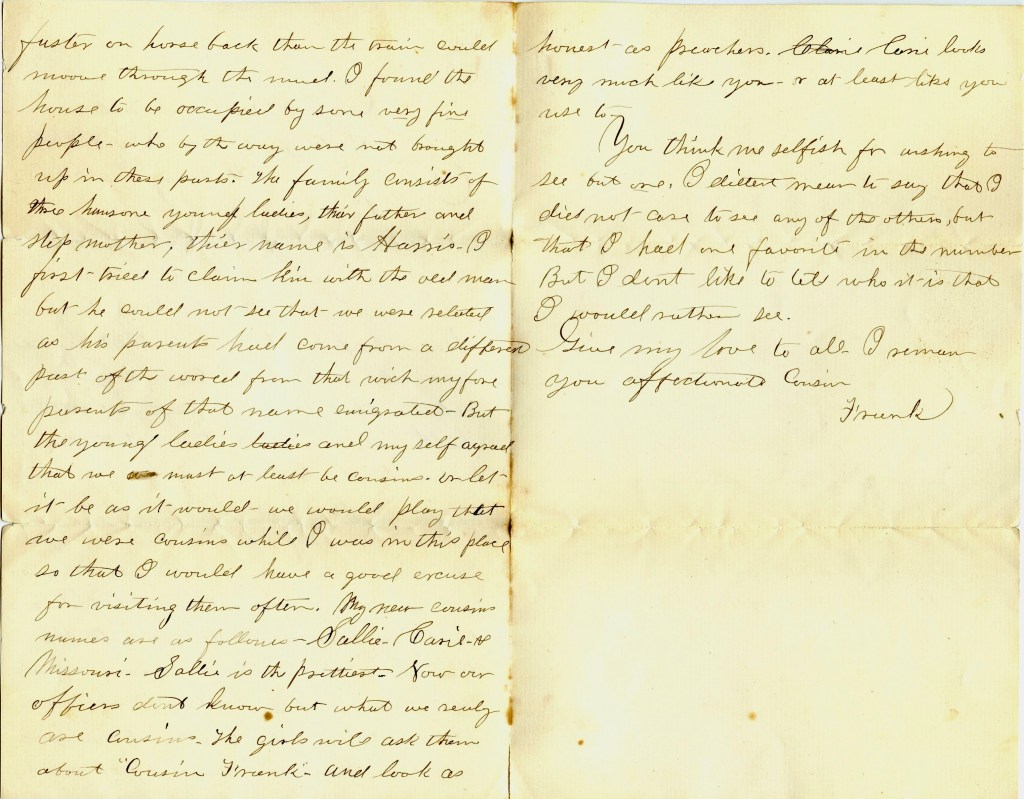 faster on horse back than the train could
moove through the mud. I found the
house to be occupied by some very fine
people - who by the way were not brought
up in these parts. The family consists of
three hansone young ladies, thier father and
step mother, thier name is Harris - I
first tried to claim kin with the old man
but he could not see that we were related
as his parents had come from a different
part of the world from that wich my fore
parents of that name emigrated - But
the young ladies ladies and my self agreed
that we must at least be cousins. or let
it be as it would - we would play that
we were cousins while I was in this place
so that I would have a good excuse
for visiting them often. My new cousins
names are as follows - Sallie - Carie - &
Missouri - Sallie is the prettiest - Now our
officers dont know but what we realy
are cousins - The girls will ask them
about "Cousin Frank" - and look as
honest - as preachers. Carie looks
very much like you - or at least like you
use to -
You think me selfish for wishing to
see but one. I dident mean to say that I
did not care to see any of the others, but
that I had one favorite in the number
But I dont like to tell who it is that
I would rather see.
Give my love to all - I remain
you affectionate Cousin
Frank